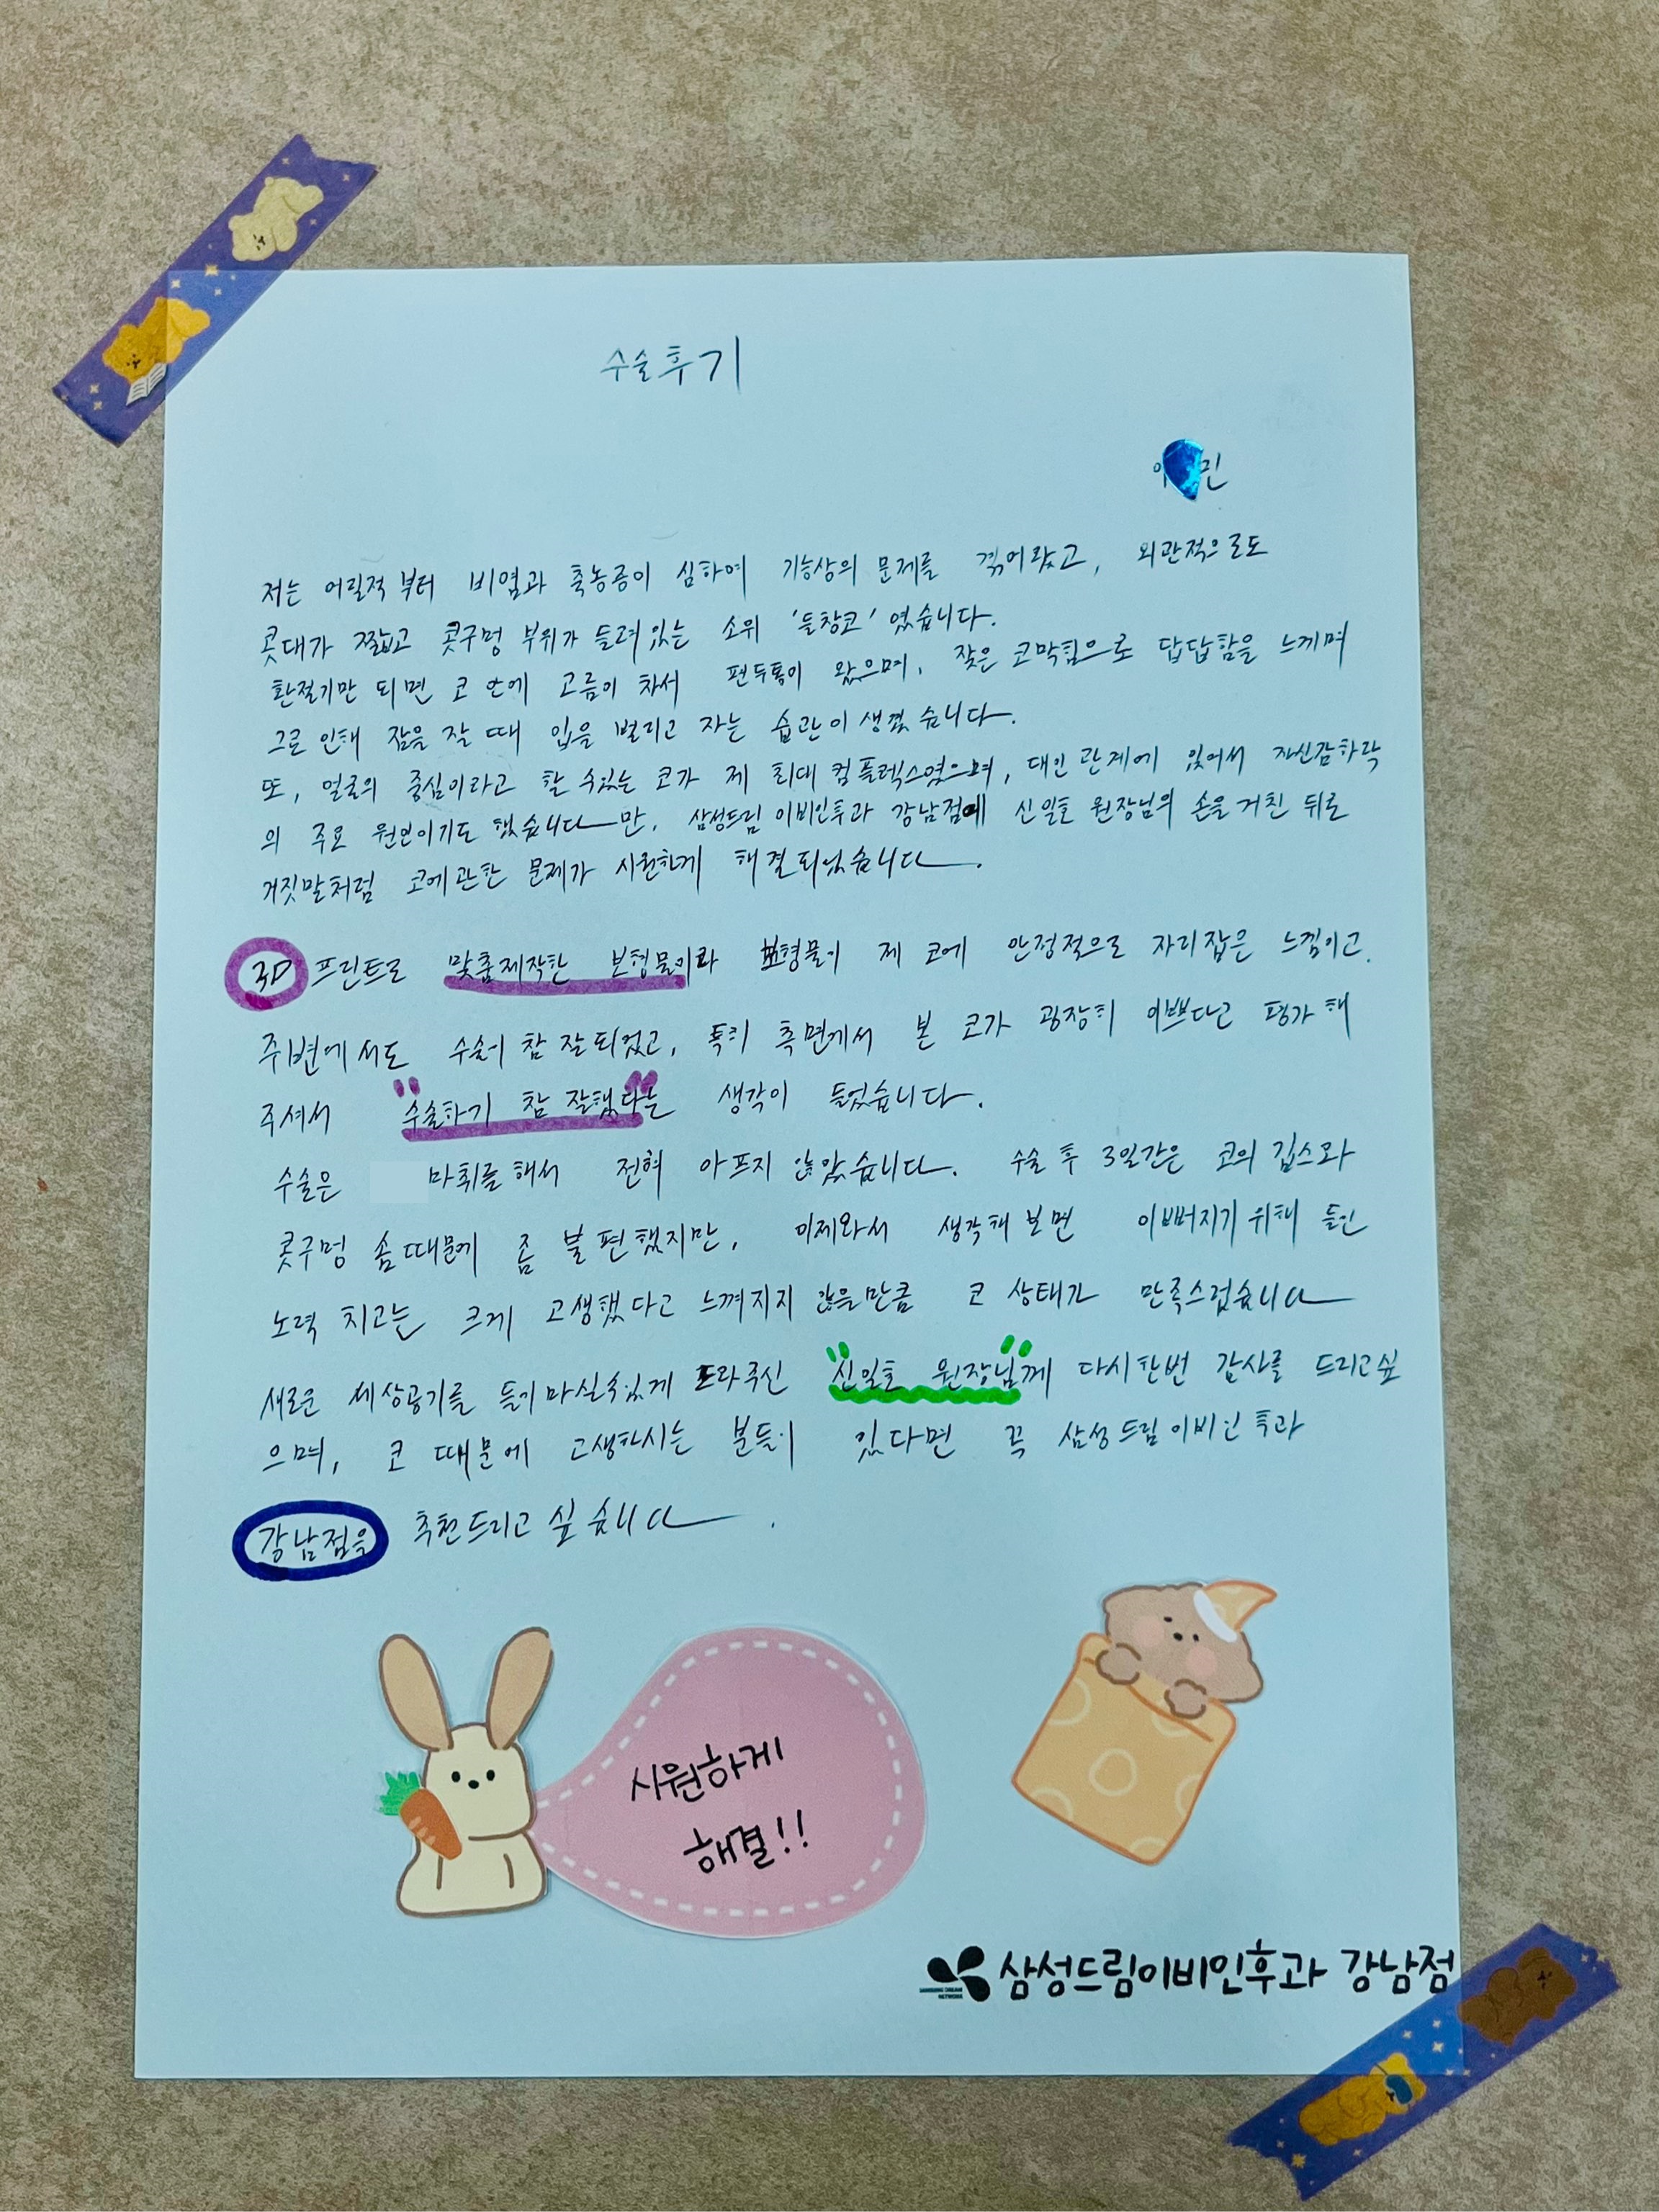 수술후기
이 민
저는 어릴적부터 비염과 축농증이 심하여 기능상의 문제를 겪어왔고, 외관적으로도
콧대가 짧고 콧구멍 부위가 들려있는 소위 '들창코' 였습니다.
환절기만 되면 코 안에 고름이 차서 편두통이 왔으며, 잦은 코막힘으로 답답함을 느끼며
그로 인해 잠을 잘 때 입을 벌리고 자는 습관이 생겼습니다.
또, 얼굴의 중심이라고 할 수있는 코가 제 최대 컴플렉스였으며, 대인관계에 있어서 자신감하락
의 주요 원인이기도 했습니다만, 삼성드림이비인후과 강남점에 신일호 원장님의 손을 거친 뒤로
거짓말처럼 코에관한 문제가 시원하게 해결되었습니다.
3D 프린트로 맞춤제작한 보형물이라 보형물이 제 코에 안정적으로 자리잡은 느낌이고.
주변에서도 수술이 참 잘되었고, 특히 측면에서 본 코가 굉장히 이쁘다고 평가해
주셔서 "수술하기 참 잘했다"는 생각이 들었습니다.
수술은 마취를해서 전혀 아프지 않았습니다. 수술 후 3일간은 코의 깁스와
콧구멍 솜때문에 좀 불편했지만, 이제와서 생각해보면 이뻐지기위해 들인
노력 치고는 크게 고생했다고 느껴지지 않을만큼 코 상태가 만족스럽습니다
새로운 세상공기를 들이마실수있게 도와주신 "신일호 원장님"께 다시한번 감사를 드리고싶
으며, 코 때문에 고생하시는 분들이 있다면 꼭 삼성드림이비인후과
강남점을 추천드리고 싶습니다.
시원하게
해결!!
삼성드림이비인후과 강남점
SAMSUNG DREAM
NETWORK